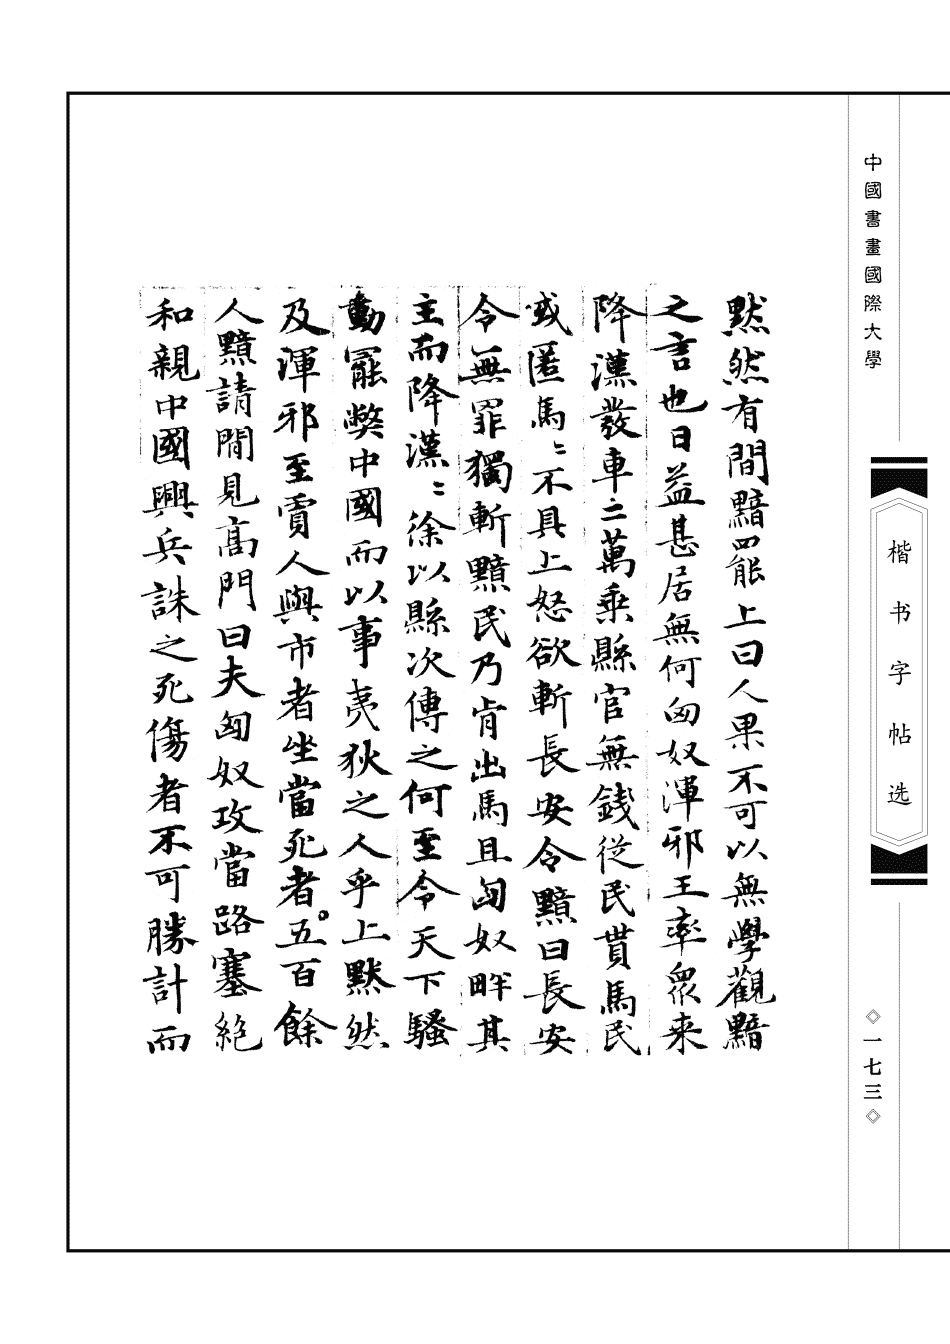 中國書畫國際大學
楷书字帖选
◇一七三◇
默然有間黯罷上曰人果不可以無學觀黯
之言也日益甚居無何匈奴渾邪王率衆来
降漢發車二萬乘縣官無錢從民貰馬民
或匿馬〻不具上怒欲斬長安令黯曰長安
令無罪獨斬黯民乃肯出馬且匈奴畔其
主而降漢〻徐以縣次傳之何至令天下騷
動罷弊中國而以事夷狄之人乎上默然
及渾邪至賈人與市者坐當死者五百餘
人黯請間見高門曰夫匈奴攻當路塞絕
和親中國興兵誅之死傷者不可勝計而